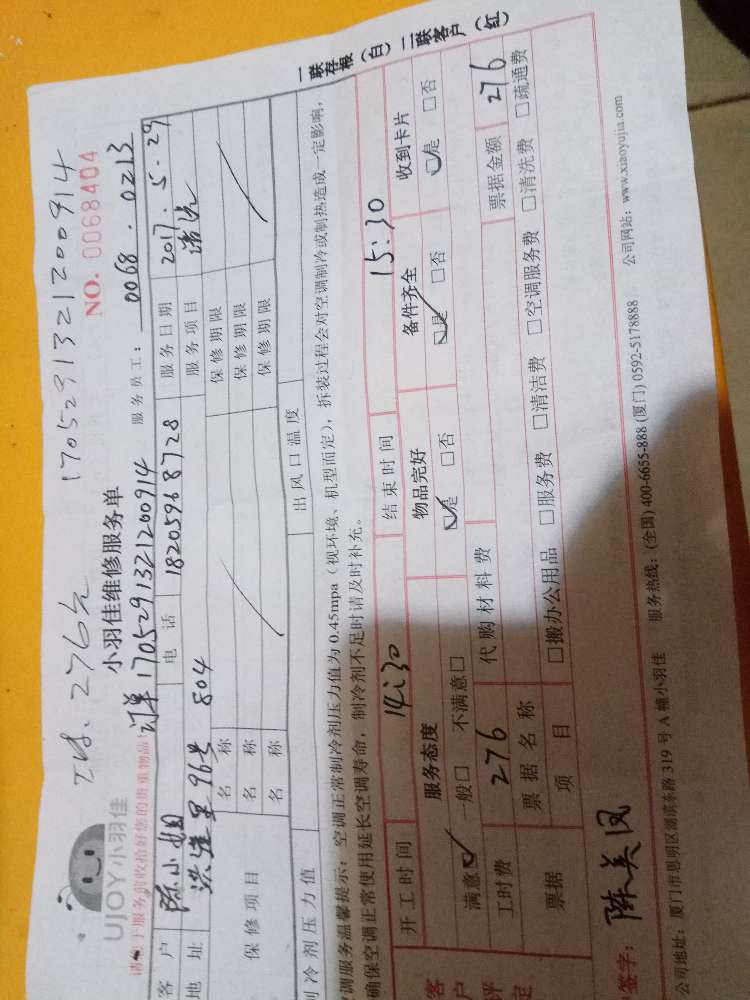 工时: 276元 170529132120​0914
UJOY小羽佳
小羽佳维修服务单
NO. 0068404
请您于服务前收拾好您的贵重物品!
订单170529132120​0914
服务员工: 0068 . 0213
客户 陈小姐 电话 18205968728 服务日期 2017.5.29
地址 96号 804 服务项目 清洗
保修项目 名称 保修期限
名称 保修期限
名称 保修期限
制冷剂压力值 出风口温度
空调服务温馨提示:空调正常制冷剂压力值为0.45mpa(视环境、机型而定),拆装过程会对空调制冷或制热造成一定影响,
确保空调正常使用延长空调寿命,制冷剂不足时请及时补充。
开工时间 14:30 结束时间 15:30
客户评定 服务态度 物品完好 备件齐全 收到卡片
满意☑ 一般□ 不满意□ ☑是 □否 ☑是 □否 ☑是 □否
工时费 276 代购材料费 票据金额 276
票据 票据名称 □搬办公用品 □服务费 □清洁费 □空调服务费 □清洗费 □疏通费
项目
签字: 陈美凤
公司地址:厦门市思明区湖滨东路319号A幢小羽佳 服务热线:(全国)400-6655-888 (厦门)0592-5178888 公司网站:www.xiaoyujia.com
一联存根(白)二联客户(红)